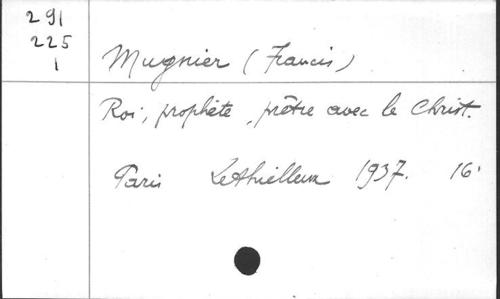 291
225
1
Mugnier (Francis)
Roi, prophète, prêtre avec le Christ.
Paris Lethielleux 1937. 16'